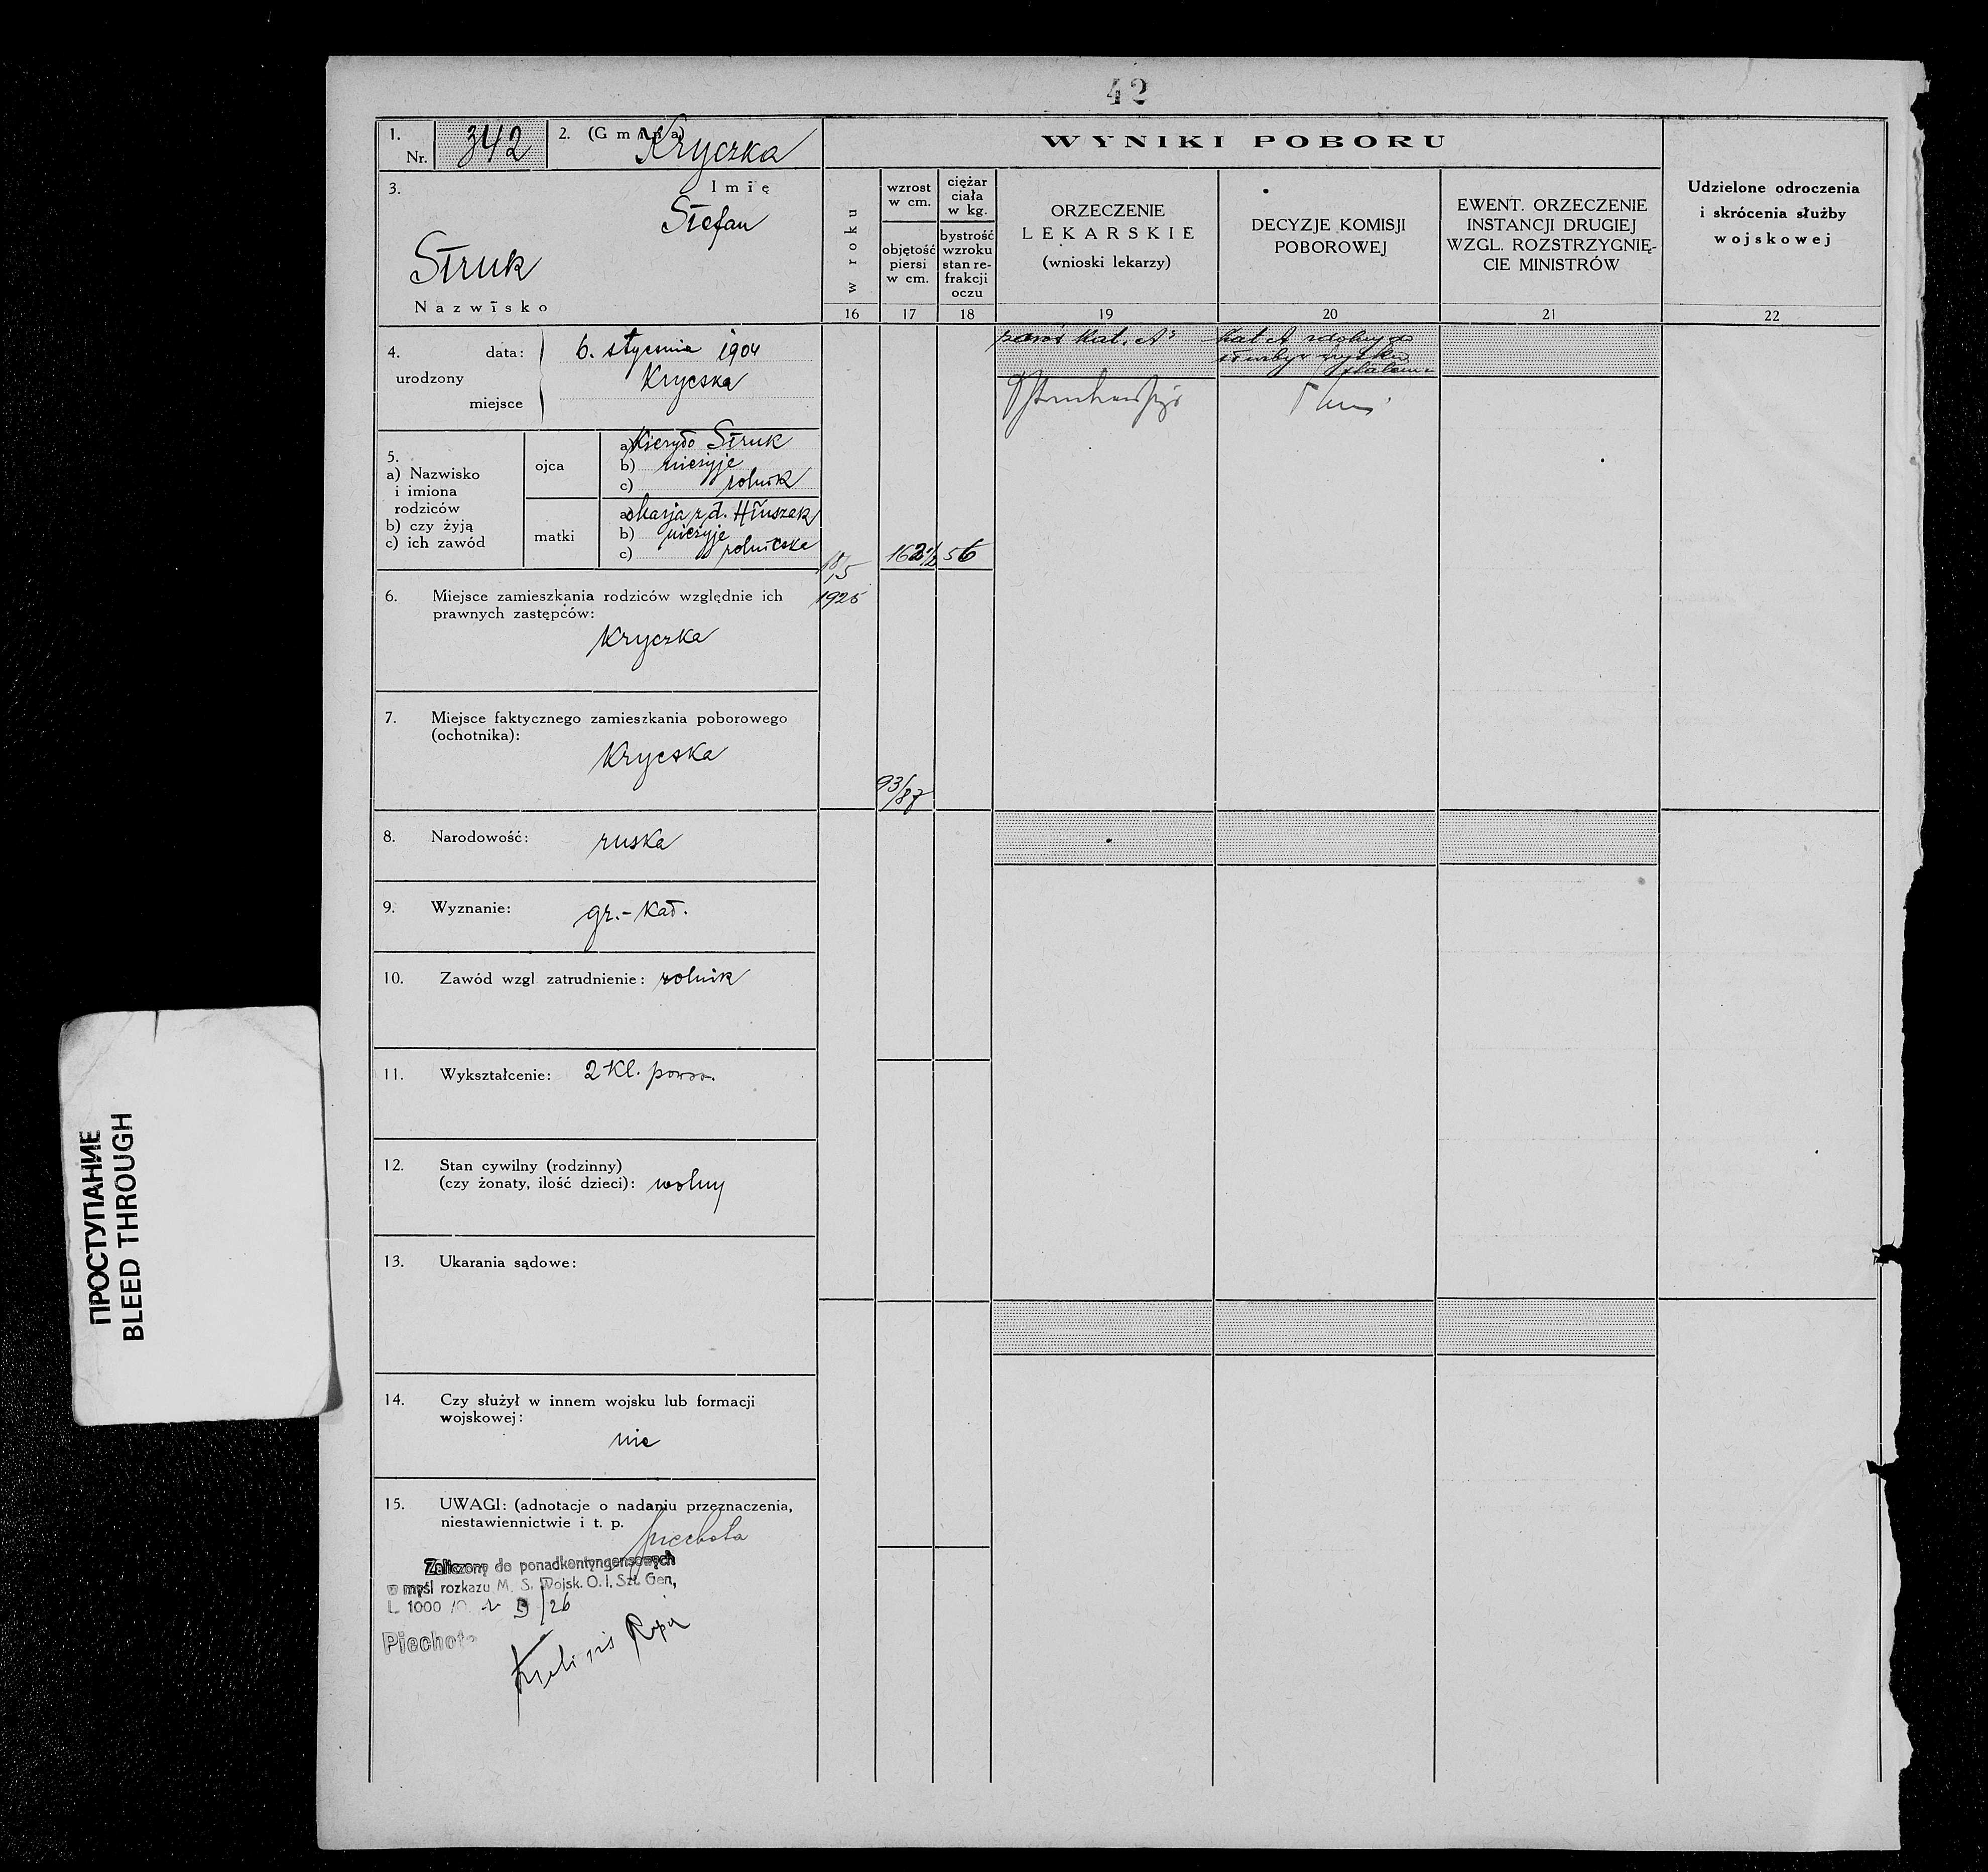 42
1. Nr. 342
2. (Gmina) Kryczka
3. Imię
Stefan
Struk
Nazwisko
4. urodzony
data: 6. stycznia 1904
Kryczka
miejsce
5.
a) Nazwisko
i imiona
rodziców
b) czy żyją
c) ich zawód
ojca
a) Struk
b) nieżyje
c) rolnik
matki
a) Marja z d. Hłuszak
b) nieżyje
c) rolniczka
6. Miejsce zamieszkania rodziców względnie ich
prawnych zastępców:
Kryczka
7. Miejsce faktycznego zamieszkania poborowego
(ochotnika):
Kryczka
8. Narodowość: ruska
9. Wyznanie: gr.-kat.
10. Zawód wzgl zatrudnienie: rolnik
11. Wykształcenie: 2 kl.
12. Stan cywilny (rodzinny)
(czy żonaty, ilość dzieci): wolny
13. Ukarania sądowe:
14. Czy służył w innem wojsku lub formacji
wojskowej:
nie
15. UWAGI: (adnotacje o nadaniu przeznaczenia,
niestawiennictwie i t. p.
piechota
Zaliczony do ponadkontyngensowych
w myśl rozkazu M. S. Wojsk. O. I. Szt. Gen,
L. 1000 /26
Piechota
WYNIKI POBORU
w roku
16
wzrost
w cm.
objętość
piersi
w cm.
17
ciężar
ciała
w kg.
bystrość
wzroku
stan re-
frakcji
oczu
18
ORZECZENIE
LEKARSKIE
(wnioski lekarzy)
19
DECYZJE KOMISJI
POBOROWEJ
20
EWENT. ORZECZENIE
INSTANCJI DRUGIEJ
WZGL. ROZSTRZYGNIĘ-
CIE MINISTRÓW
21
Udzielone odroczenia
i skrócenia służby
wojskowej
22
18/5
1925
162 1/2
56
93/87
kat. A
kat A zdolny do
służby w wojsku
stałem
ПРОСТУПАНИЕ
BLEED THROUGH